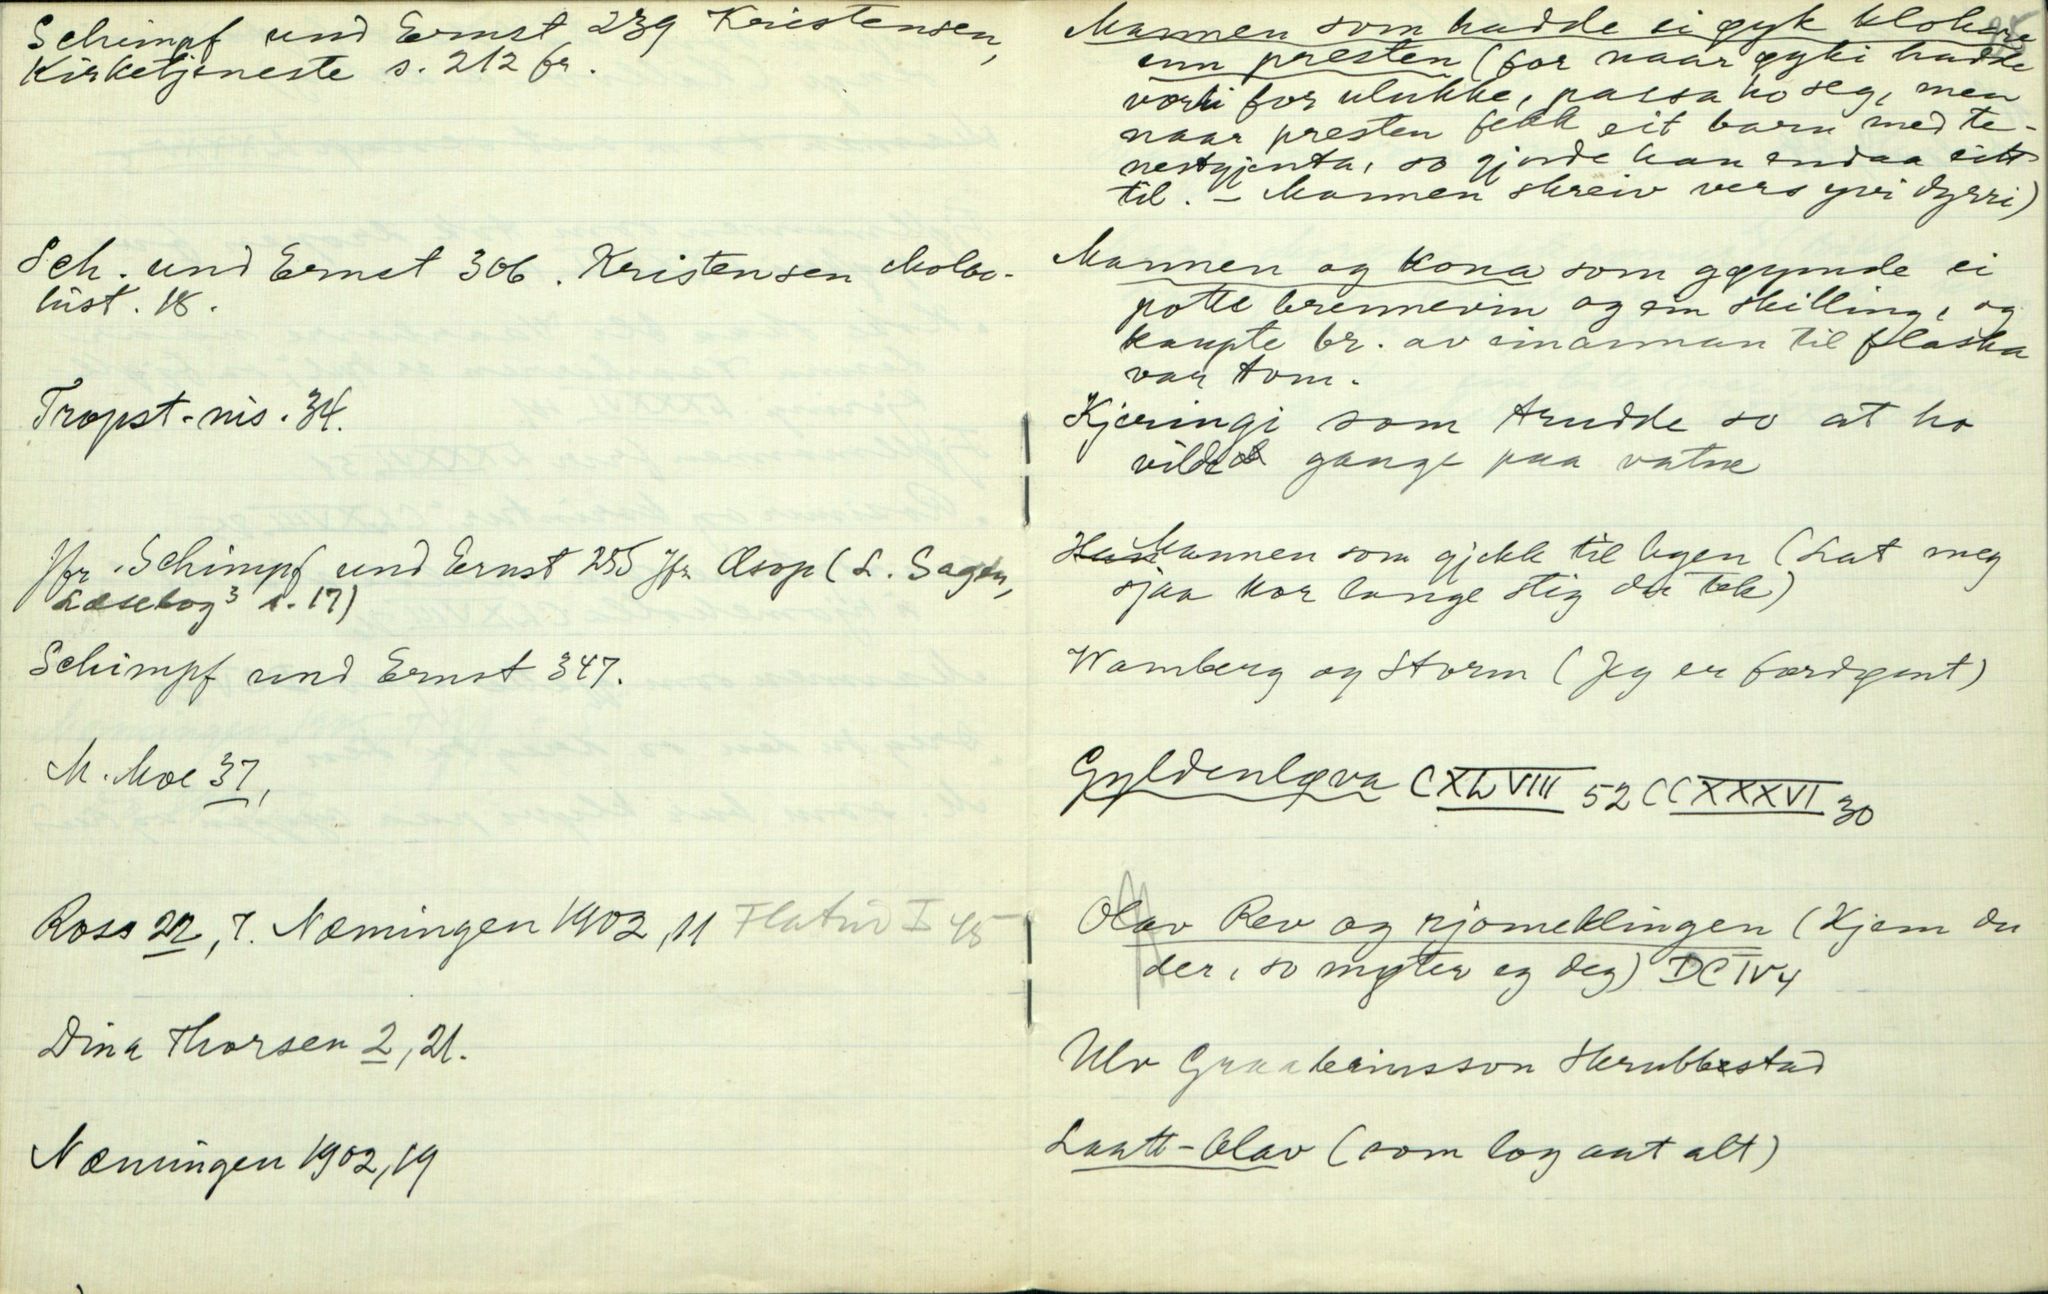 Schimpf und Ernst 239 Kristensen,
Kirketjeneste s. 212 fr.
Sch. und Ernst 306. Kristensen Molbo-
hist. 18.
Tropst-nis. 34.
Jfr. Schimpf und Ernst 255 Jfr Æsop (L. Sagen,
Læsebog³ s. 17)
Schimpf und Ernst 347.
M. Moe 37,
Ross 22, 7. Næmingen 1902, 11 Flatin I 45
Dina Thorsen 2, 21.
Næmingen 1902, 19
Mannen som hadde ei gyk klokare
enn presten (for naar gyki hadde
vorti for ulukke, passa ho seg, men
naar presten fekk eit barn med te-
nestgjenta, so gjorde han endaa eitt
til. – Mannen skreiv vers yvi dyrri)
Mannen og kona som gøymde ei
potte brennevin og ein skilling, og
kaupte br. av einannan til flaska
var tom.
Kjeringi som trudde so at ho
vilde gange paa vatne
Mannen som gjekk til legen (Lat meg
sjaa kor lange stig du tek)
Wamberg og Storm (Jeg er færdigent)
Gyldenløva CXLVIII 52 CCXXXVI 30
Olav Rev og rjomeklingen (Kjem du
der, so møter eg deg) DCIV 4
Ulv Graabeinsson Skrubbestad
Laatt-Olav (som log aat alt)